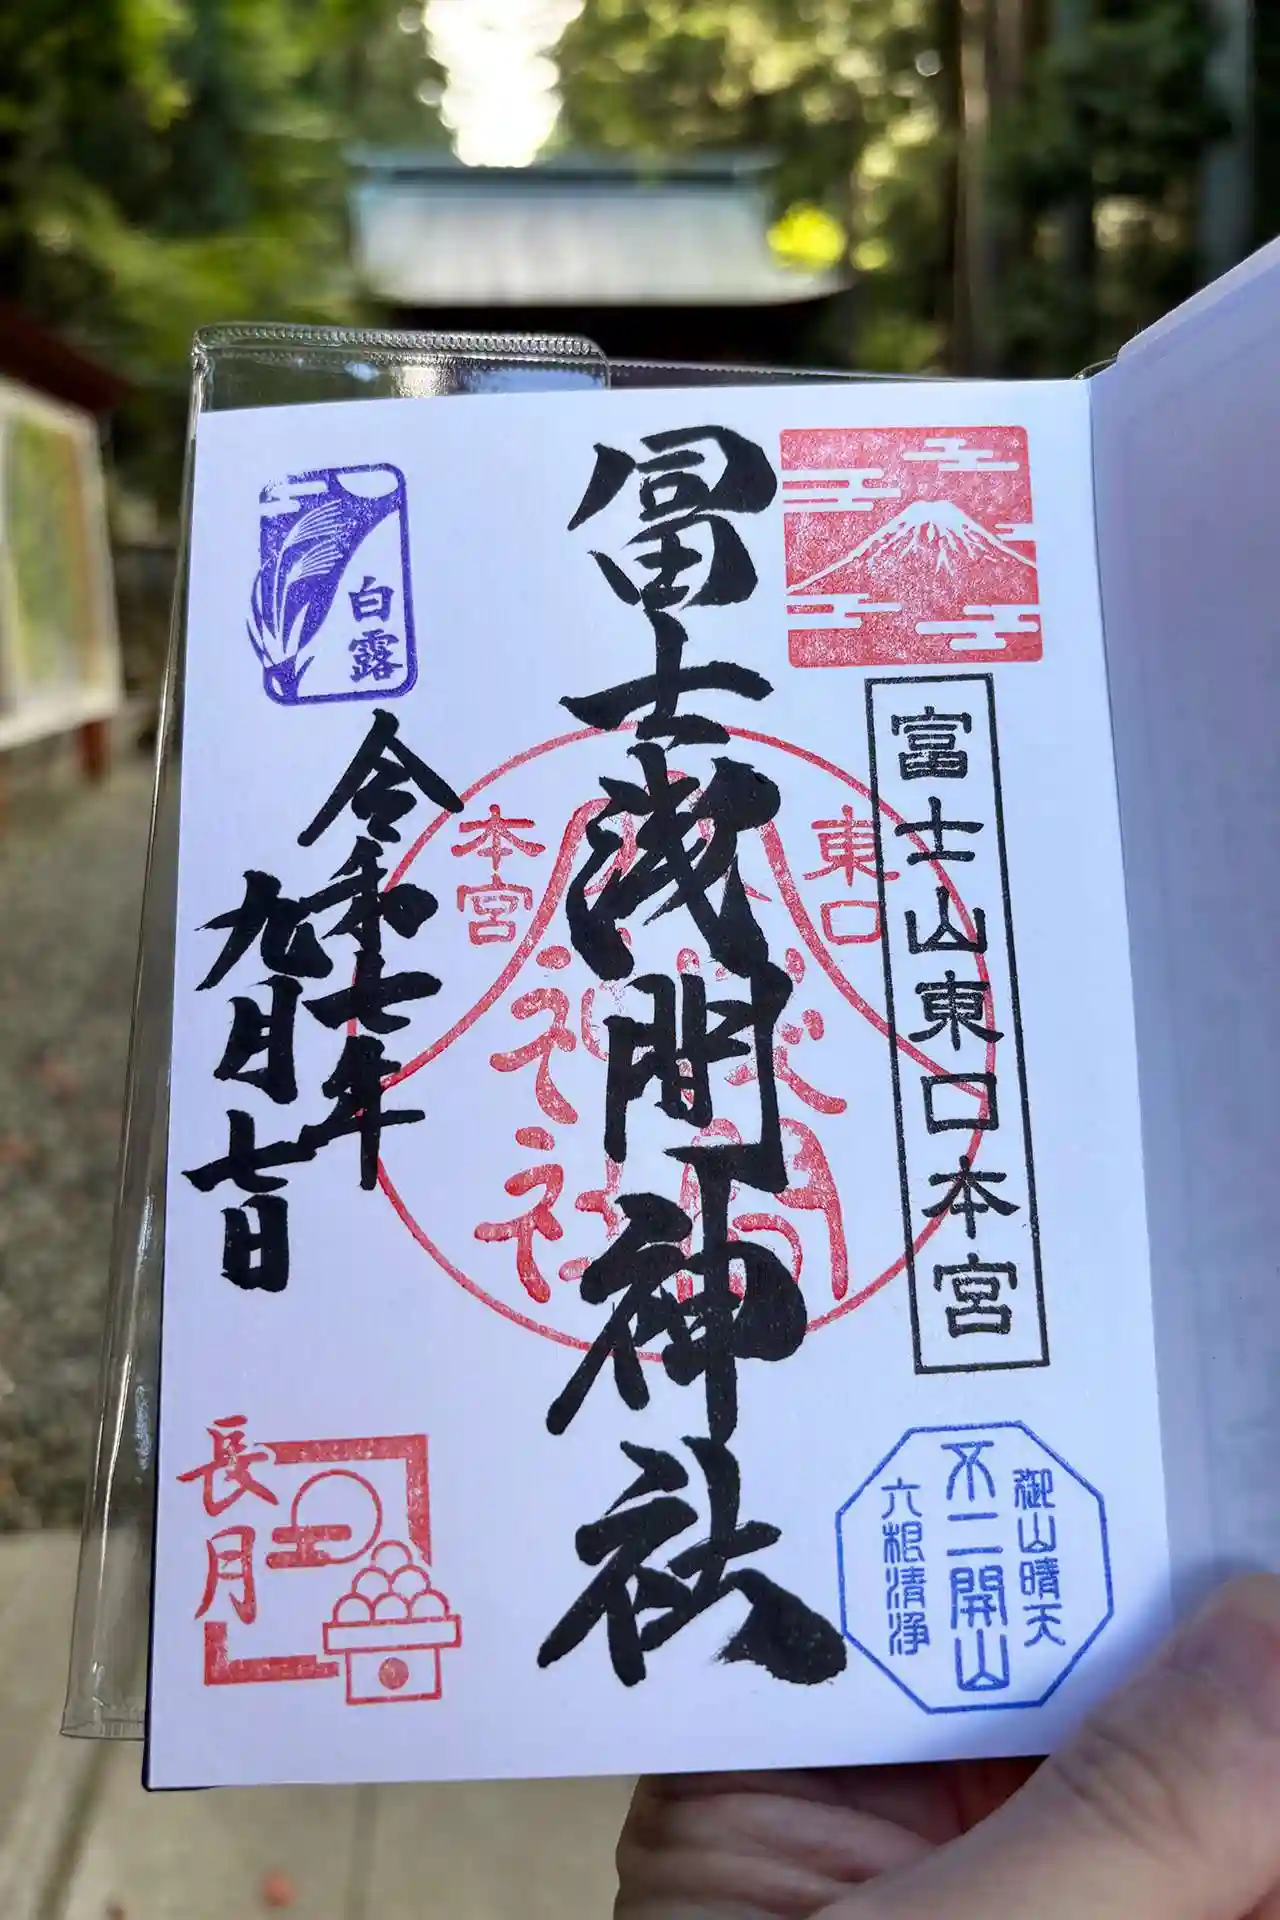 富士山東口本宮
御山晴天
不二開山
六根清浄
冨士浅間神社
東口
本宮
白露
令和七年
九月七日
長月